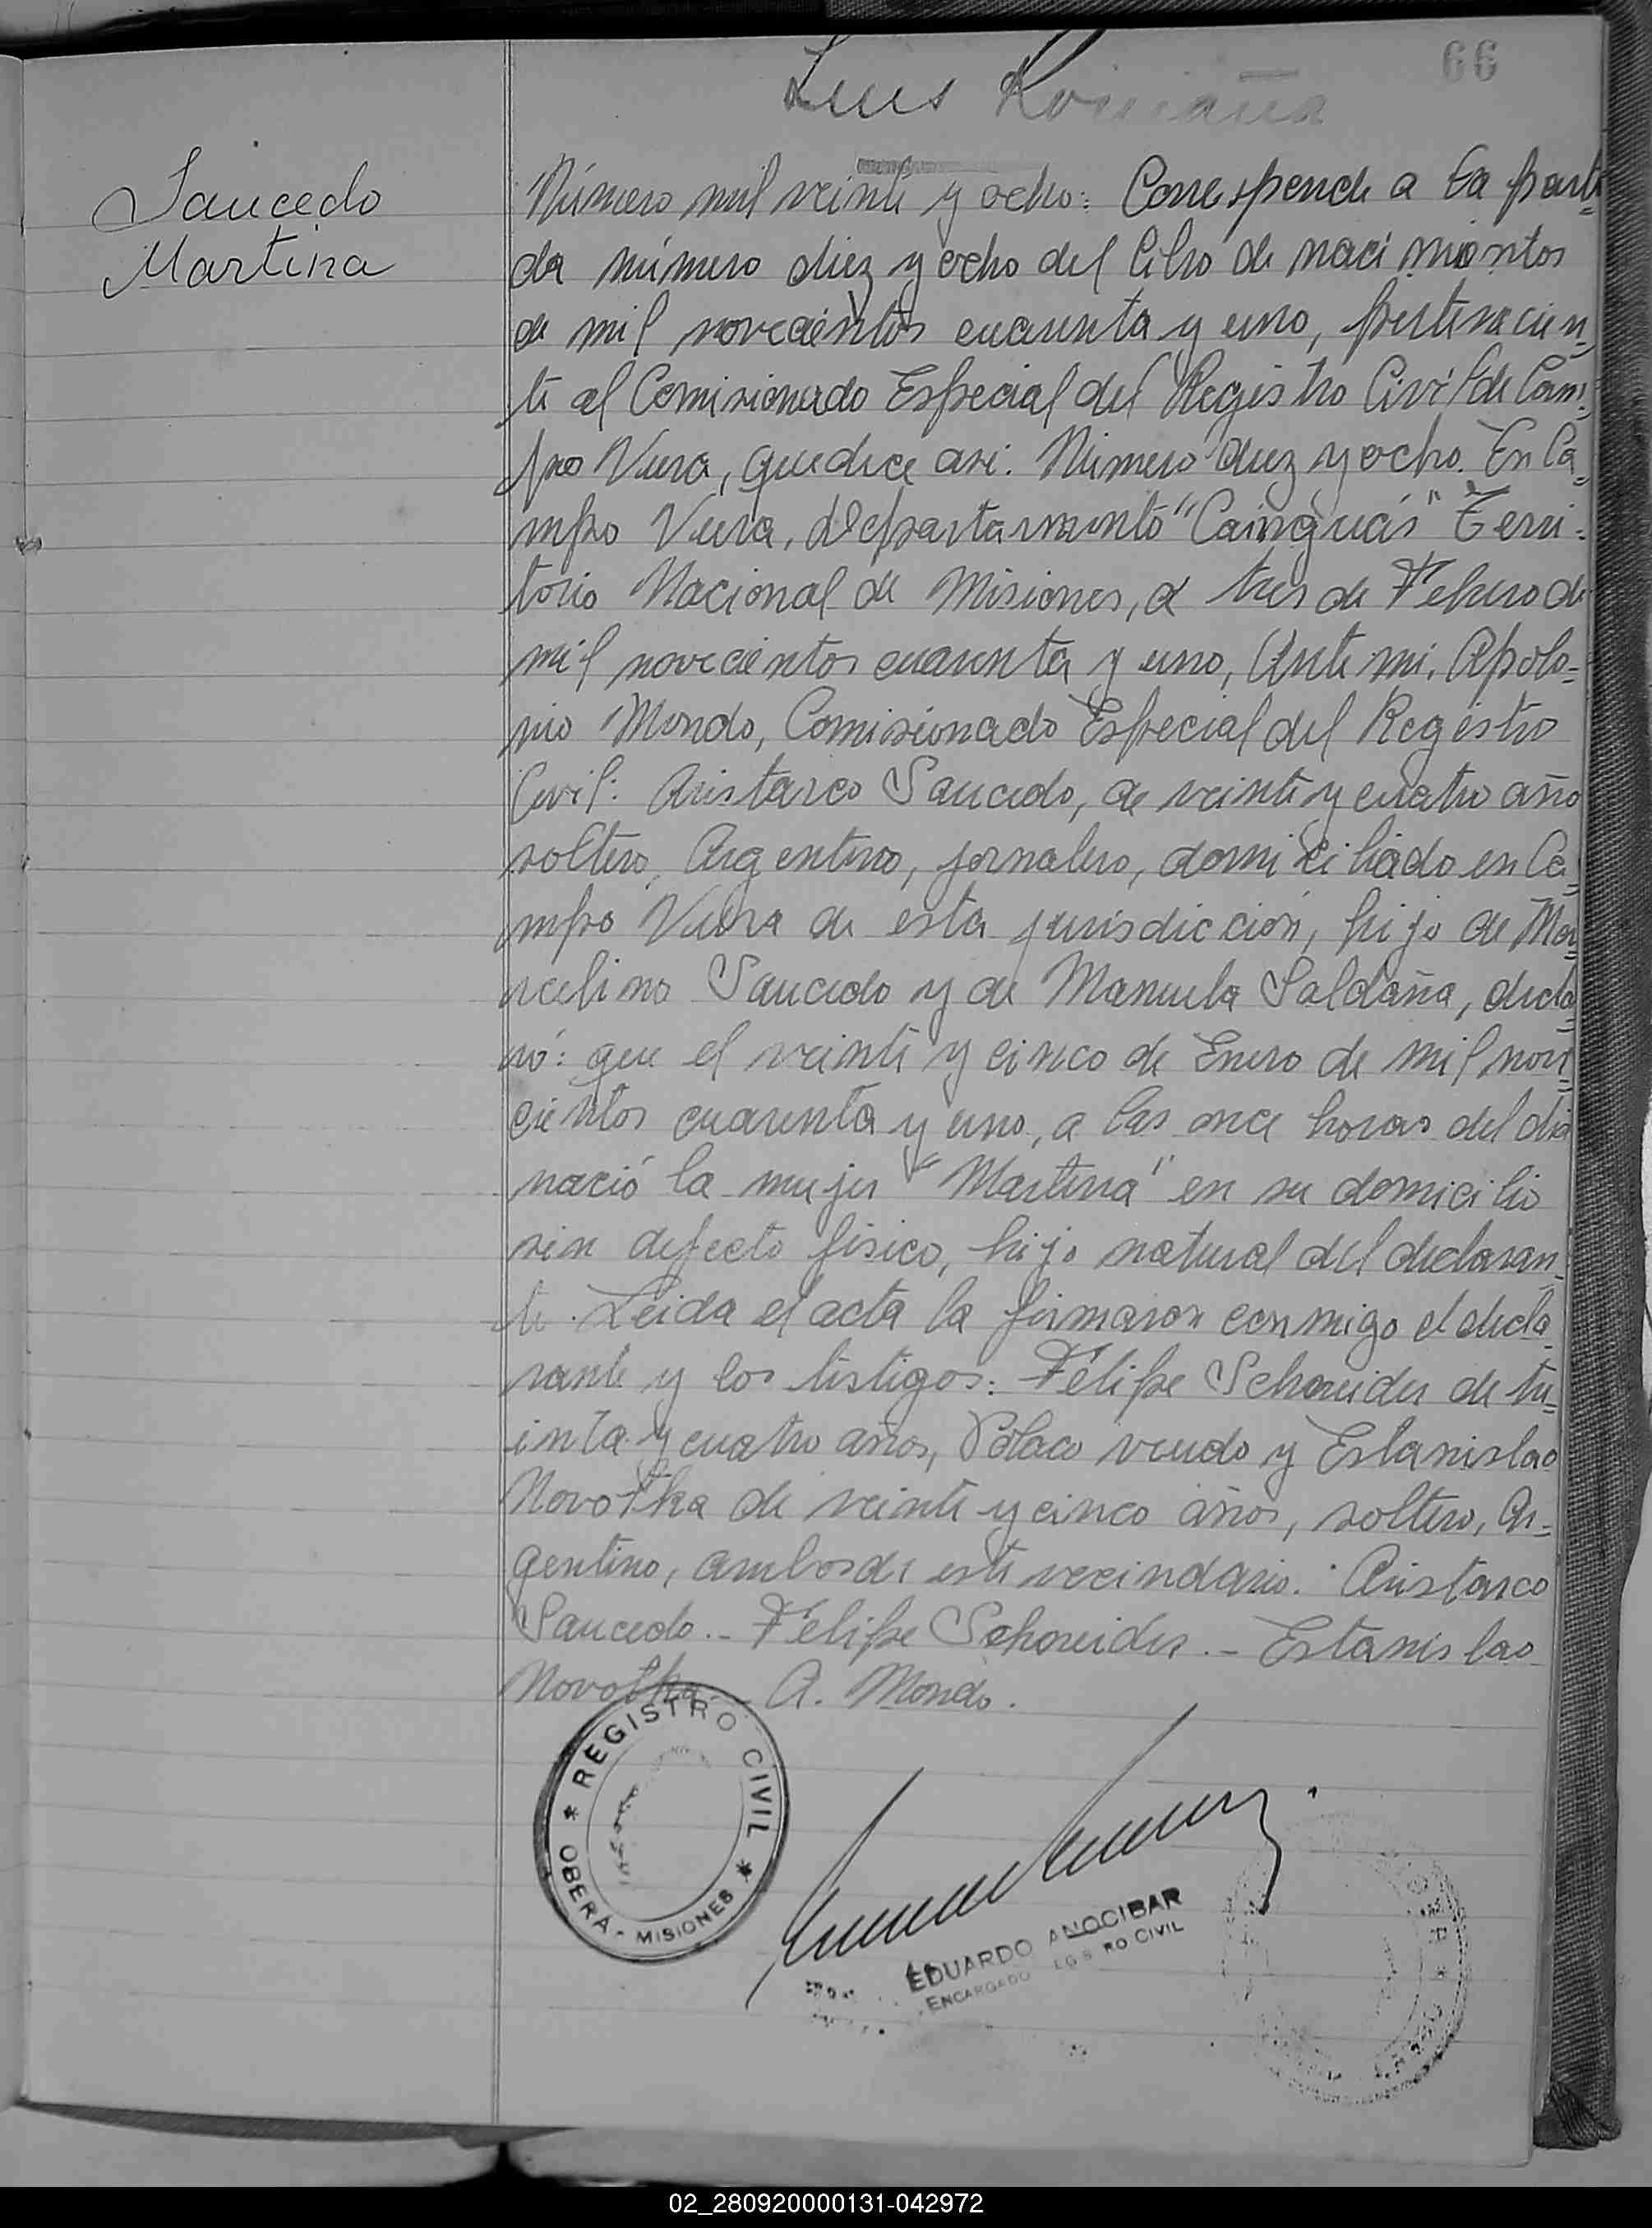 66
Luis
Saucedo
Martina
Número mil veinte y ocho: Corresponde a la parti=
da número diez y ocho del libro de nacimientos
de mil novecientos cuarenta y uno, pertenecien=
te al Comisionado Especial del Registro Civil de Cam=
po Viera, que dice asi: Número diez y ocho. En Ca=
mpo Viera, departamento "Cainguás" Terri=
torio Nacional de Misiones, a tres de Febrero de
mil novecientos cuarenta y uno, Ante mi, Apolo=
nio Mondo, Comisionado Especial del Registro
Civil: Aristarco Saucedo, de veinte y cuatro año
soltero, Argentino, jornalero, domiciliado en Ca=
mpo Viera de esta jurisdicción, hijo de Mar=
celino Saucedo y de Manuela Saldaña, decla=
ró: que el veinte y cinco de Enero de mil nove=
cientos cuarenta y uno, a las once horas del dia
nació la mujer "Martina" en su domicilio
sin defecto fisico, hijo natural del declaran=
te. Leida el acta la firmaron conmigo el decla=
rante y los testigos: Felipe Schoneider de tre=
inta y cuatro años, Polaco viudo y Estanislao
Novotka de veinte y cinco años, soltero, Ar=
gentino, ambos de este vecindario. Aristarco
Saucedo.- Felipe Schoneider.- Estanislao
Novotka.- A. Mondo.
REGISTRO CIVIL
OBERÁ - MISIONES
EDUARDO ANOCIBAR
ENCARGADO REGISTRO CIVIL
02_280920000131-042972